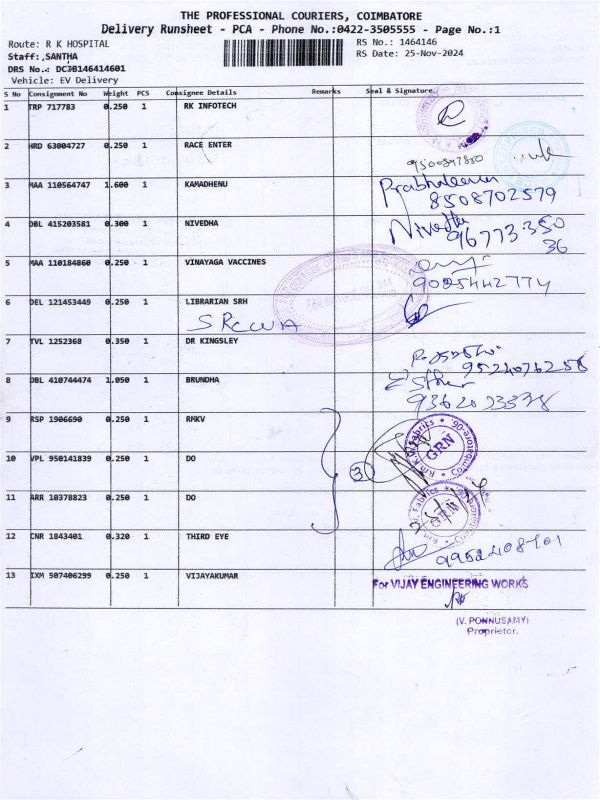 THE PROFESSIONAL COURIERS, COIMBATORE
Delivery Runsheet - PCA - Phone No.:0422-3505555 - Page No.:1
Route: R K HOSPITAL
RS No.: 1464146
Staff:,SANTHA
RS Date: 25-Nov-2024
DRS No.: DCJB146414601
Vehicle: EV Delivery
S No Consignment No Weight PCS Consignee Details Remarks Seal & Signature
1 TRP 717783 0.250 1 RK INFOTECH
2 HRD 63004727 0.250 1 RACE ENTER
3 MAA 110564747 1.600 1 KAMADHENU
8508702579
4 DBL 415203581 0.300 1 NIVEDHA Nivedha
96773350
36
5 MAA 110184860 0.250 1 VINAYAGA VACCINES
9025442774
6 DEL 121453449 0.250 1 LIBRARIAN SRH
7 TVL 1252368 0.350 1 DR KINGSLEY
9524076258
8 DBL 410744474 1.050 1 BRUNDHA Esther
9 RSP 1906690 0.250 1 RMKV
GRN
10 VPL 950141839 0.250 1 DO
3
11 ARR 10378823 0.250 1 DO
GRN
12 CNR 1843401 0.320 1 THIRD EYE
13 IXM 507406299 0.250 1 VIJAYAKUMAR
For VIJAY ENGINEERING WORKS
(V. PONNUSAMY)
Proprietor.